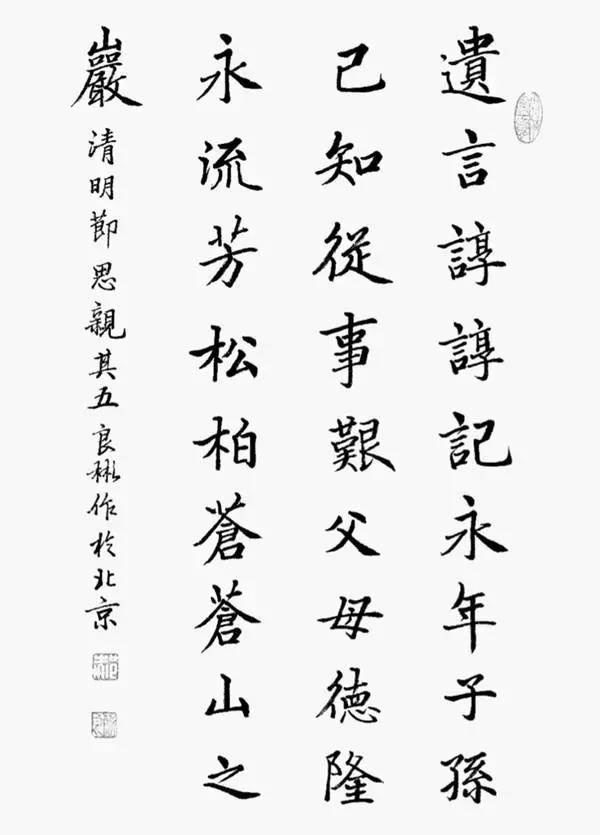 遺言諄諄記永年子孫
已知從事艱父母德隆
永流芳松柏蒼蒼山之
巖
清明節思親其五良彬作於北京